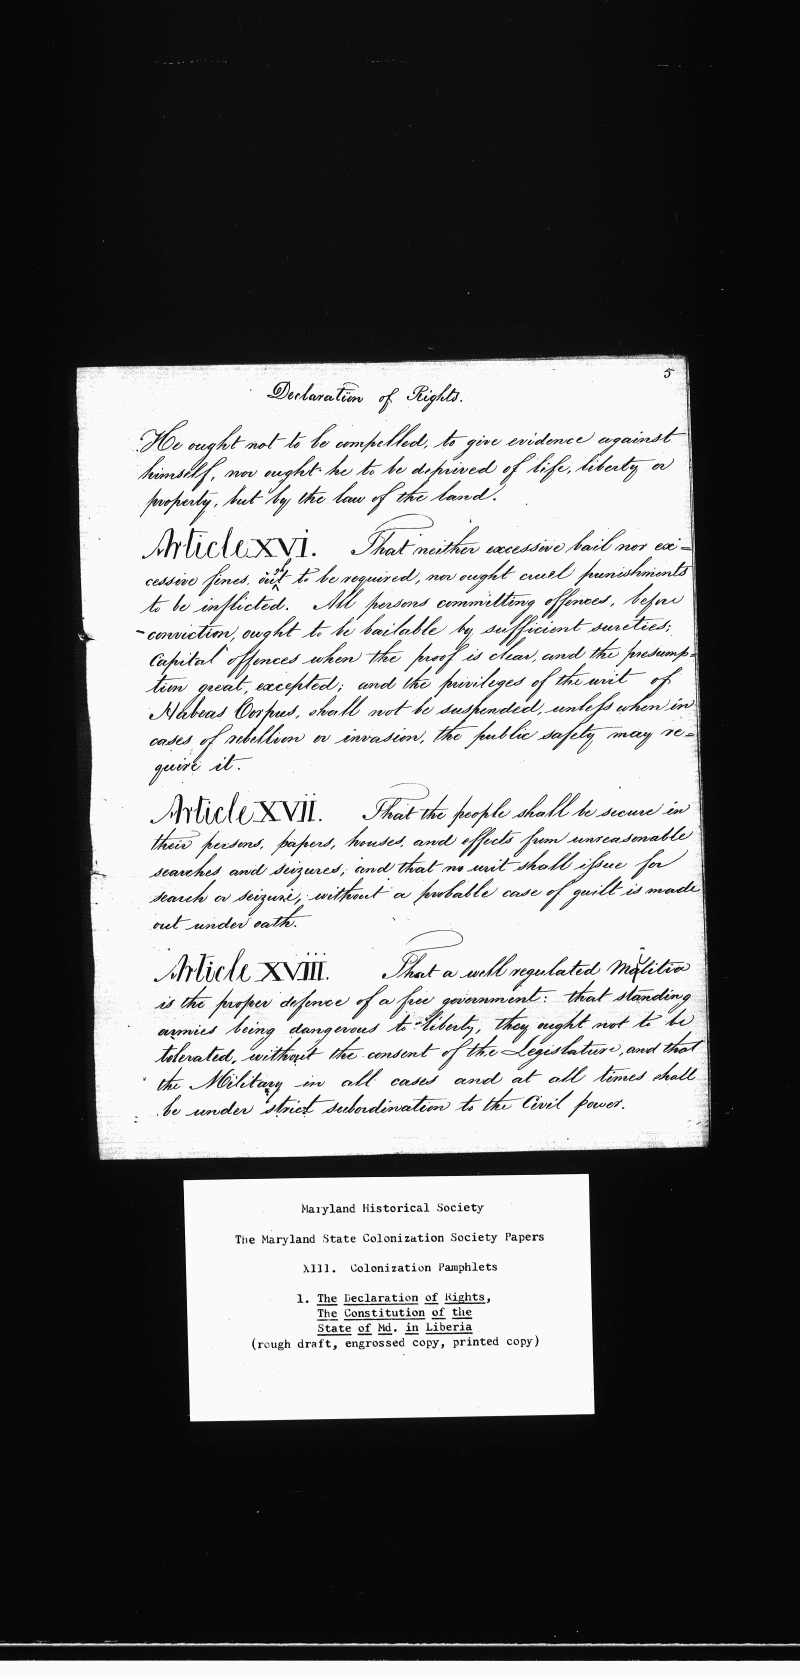 5
Declaration of Rights.
He ought not to be compelled, to give evidence against
himself, nor ought he to be deprived of life, liberty or
property, but by the law of the land.
Article XVI. That neither excessive bail nor ex=
cessive fines, ought to be required, nor ought cruel punishments
to be inflicted. All persons committing offences, before
conviction, ought to be bailable by sufficient sureties;
Capital offences when the proof is clear, and the presump=
tion great, excepted; and the privileges of the writ of
Habeas Corpus, shall not be suspended, unless when in
cases of rebellion or invasion, the public safety may re=
quire it.
Article XVII. That the people shall be secure in
their persons, papers, houses, and effects from unreasonable
searches and seizures; and that no writ shall issue for
search or seizure, without a probable case of guilt is made
out under oath.
Article XVIII. That a well regulated Militia
is the proper defence of a free government: that standing
armies being dangerous to liberty, they ought not to be
tolerated, without the consent of the Legislature, and that
the Military in all cases and at all times shall
be under strict subordination to the Civil power.
Maryland Historical Society
The Maryland State Colonization Society Papers
XIII. Colonization Pamphlets
1. The Declaration of Rights,
The Constitution of the
State of Md. in Liberia
(rough draft, engrossed copy, printed copy)